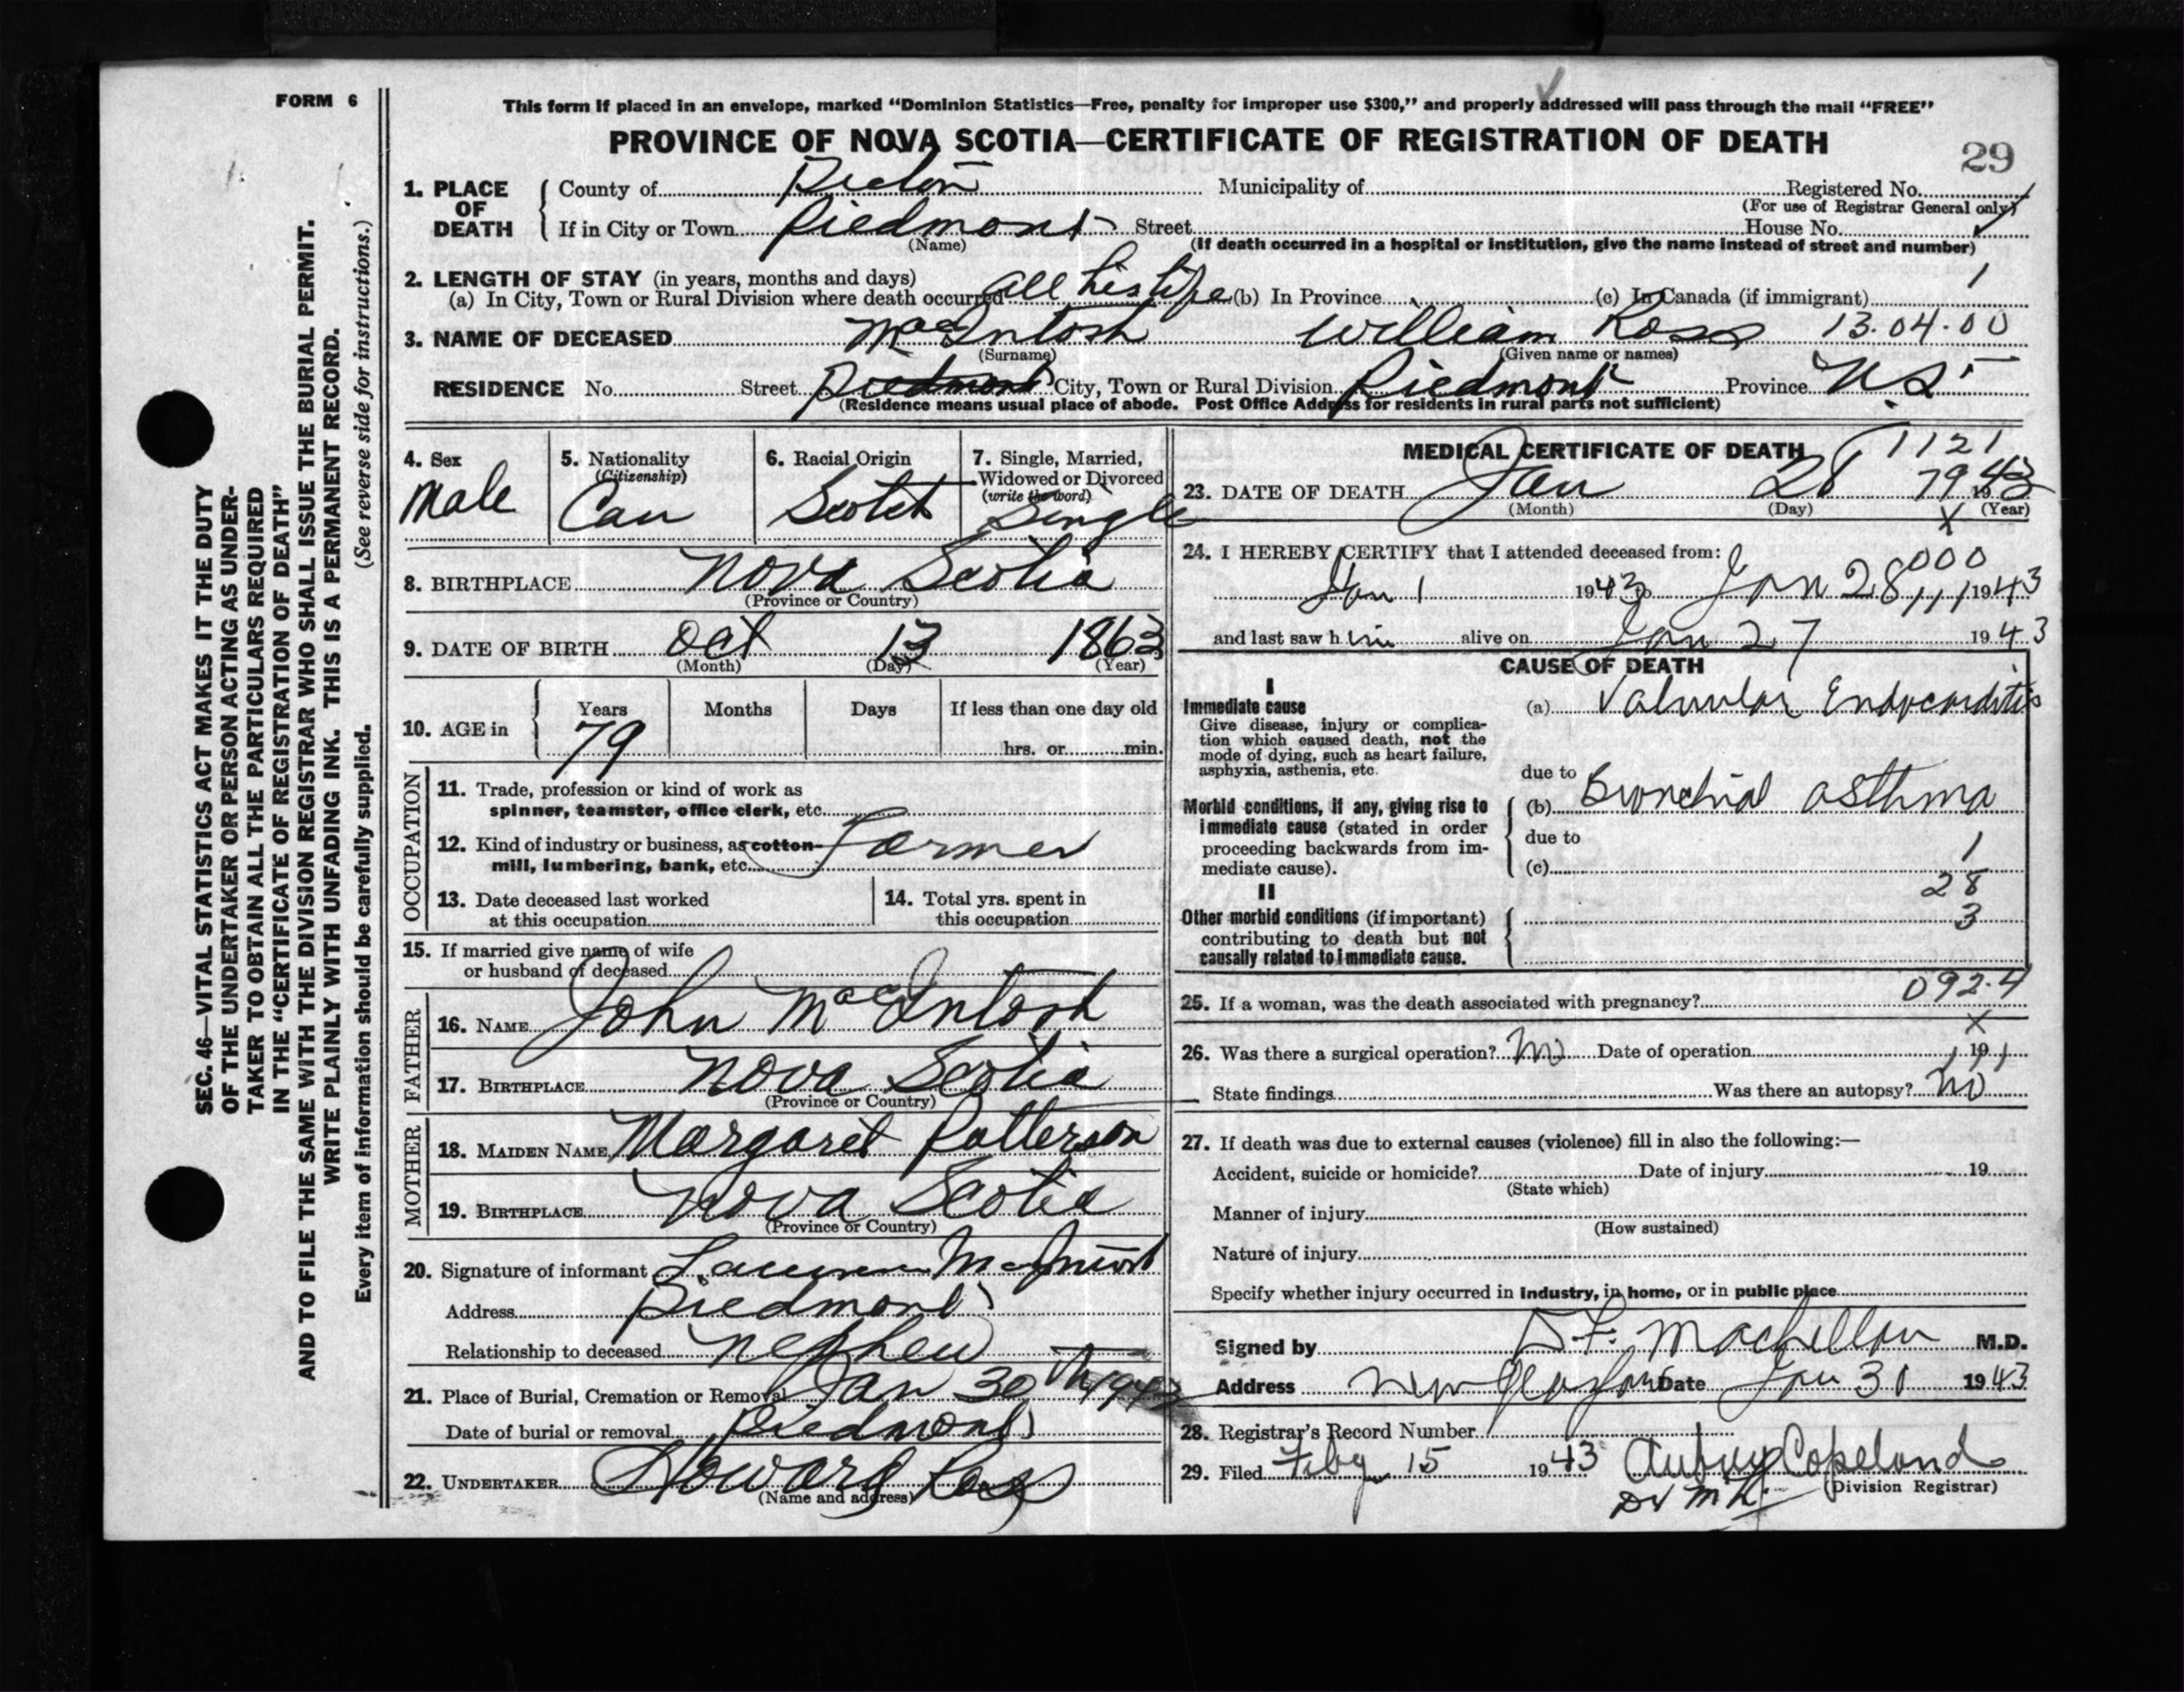 FORM 6
This form if placed in an envelope, marked “Dominion Statistics—Free, penalty for improper use $300,” and properly addressed will pass through the mail “FREE”
PROVINCE OF NOVA SCOTIA—CERTIFICATE OF REGISTRATION OF DEATH
29
SEC. 46—VITAL STATISTICS ACT MAKES IT THE DUTY
OF THE UNDERTAKER OR PERSON ACTING AS UNDER-
TAKER TO OBTAIN ALL THE PARTICULARS REQUIRED
IN THE “CERTIFICATE OF REGISTRATION OF DEATH”
AND TO FILE THE SAME WITH THE DIVISION REGISTRAR WHO SHALL ISSUE THE BURIAL PERMIT.
WRITE PLAINLY WITH UNFADING INK. THIS IS A PERMANENT RECORD.
Every item of information should be carefully supplied. (See reverse side for instructions.)
1. PLACE OF DEATH
County of Pictou Municipality of Registered No.
(For use of Registrar General only)
If in City or Town Piedmont Street House No.
(Name) (If death occurred in a hospital or institution, give the name instead of street and number)
2. LENGTH OF STAY (in years, months and days)
(a) In City, Town or Rural Division where death occurred all his life (b) In Province (c) In Canada (if immigrant) 1
3. NAME OF DECEASED MacIntosh William Ross 13.04.00
(Surname) (Given name or names)
RESIDENCE No. Street Piedmont City, Town or Rural Division Piedmont Province N.S.
(Residence means usual place of abode. Post Office Address for residents in rural parts not sufficient)
4. Sex Male
5. Nationality (Citizenship) Can
6. Racial Origin Scotch
7. Single, Married, Widowed or Divorced (write the word) Single
8. BIRTHPLACE Nova Scotia
(Province or Country)
9. DATE OF BIRTH Oct 13 1863
(Month) (Day) (Year)
10. AGE in Years Months Days If less than one day old
79 hrs. or min.
OCCUPATION
11. Trade, profession or kind of work as
spinner, teamster, office clerk, etc.
12. Kind of industry or business, as cotton-
mill, lumbering, bank, etc. Farmer
13. Date deceased last worked
at this occupation
14. Total yrs. spent in
this occupation
15. If married give name of wife
or husband of deceased
FATHER
16. NAME John MacIntosh
17. BIRTHPLACE Nova Scotia
(Province or Country)
MOTHER
18. MAIDEN NAME Margaret Patterson
19. BIRTHPLACE Nova Scotia
(Province or Country)
20. Signature of informant
Address Piedmont
Relationship to deceased Nephew
21. Place of Burial, Cremation or Removal Jan 30th 1943
Date of burial or removal Piedmont
22. UNDERTAKER Howard Ross
(Name and address)
MEDICAL CERTIFICATE OF DEATH
1121
23. DATE OF DEATH Jan 28 79 1943
(Month) (Day) (Year)
X
24. I HEREBY CERTIFY that I attended deceased from:
000
Jan 1 1943 to Jan 28 111 1943
and last saw him alive on Jan 27 1943
CAUSE OF DEATH
I
Immediate cause
Give disease, injury or complica-
tion which caused death, not the
mode of dying, such as heart failure,
asphyxia, asthenia, etc.
(a) Valvular Endocarditis
due to
Morbid conditions, if any, giving rise to
immediate cause (stated in order
proceeding backwards from im-
mediate cause).
(b) Bronchial asthma
due to
1
(c)
28
II
Other morbid conditions (if important)
contributing to death but not
causally related to immediate cause.
3
092.4
25. If a woman, was the death associated with pregnancy?
X
26. Was there a surgical operation? No Date of operation 19
State findings Was there an autopsy? No
27. If death was due to external causes (violence) fill in also the following:—
Accident, suicide or homicide? Date of injury 19
(State which)
Manner of injury
(How sustained)
Nature of injury
Specify whether injury occurred in industry, in home, or in public place
Signed by MacLellan M.D.
Address New Glasgow Date Jan 30 1943
28. Registrar's Record Number
29. Filed Feby 15 1943 Copeland
(Division Registrar)